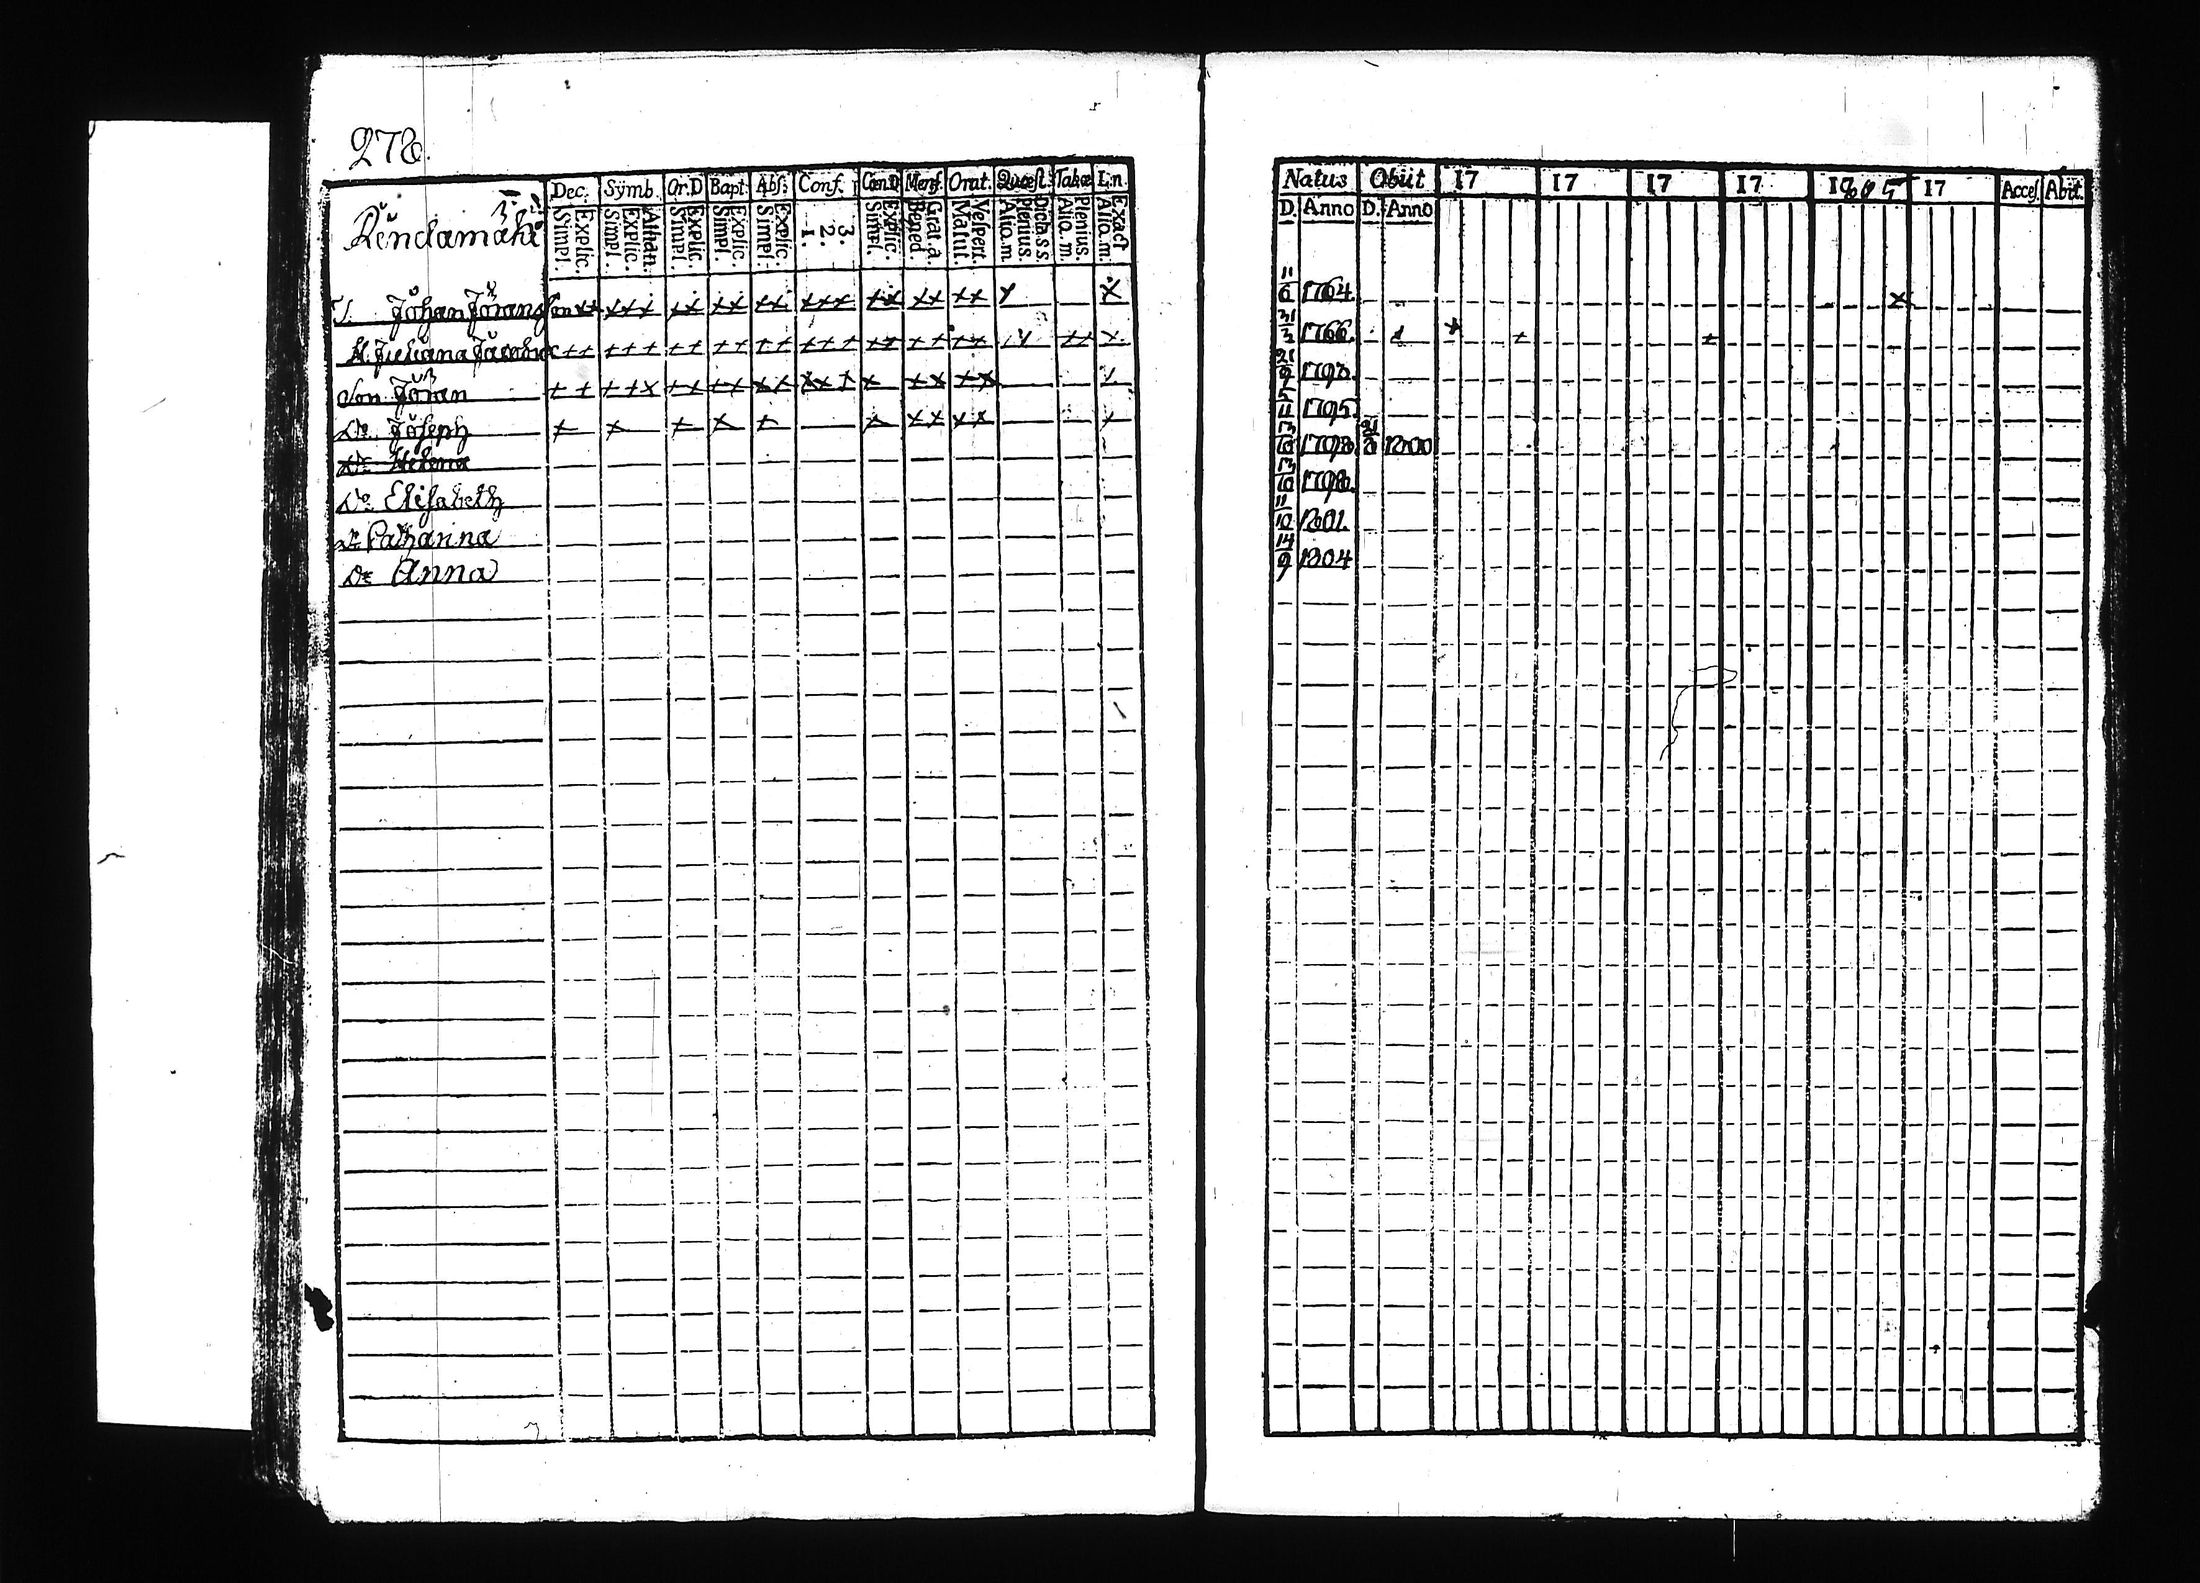 278.
Dec. Symb. Or.D Bapt. Abs: Conf. Cœn.D Mens. Orat. Quæst. Tabæ Lin.
Simpl. Explic. Simpl. Explic. Athan. Simpl. Explic. Simpl. Explic. Simpl. Explic. 1. 2. 3. Simpl. Explic. Bened. Grat. a. Matut. Vespert. Alio. m. Plenius. Dicta. s. s. Alio. m. Plenius. Alio. m. Exact
Johan Jöransson
H. Juliana
Son Jöran
Dº Joseph
Dr Helena
Dr Elisabeth
Dr Catharina
Dr Anna
Natus Obiit 17 17 17 17 1805 17 Acces. Abit.
D. Anno D. Anno
11/6 1764.
31/3 1766.
21/9 1793.
5/11 1795.
13/10 1798 1800
13/10 1798.
11/10 1801.
14/9 1804